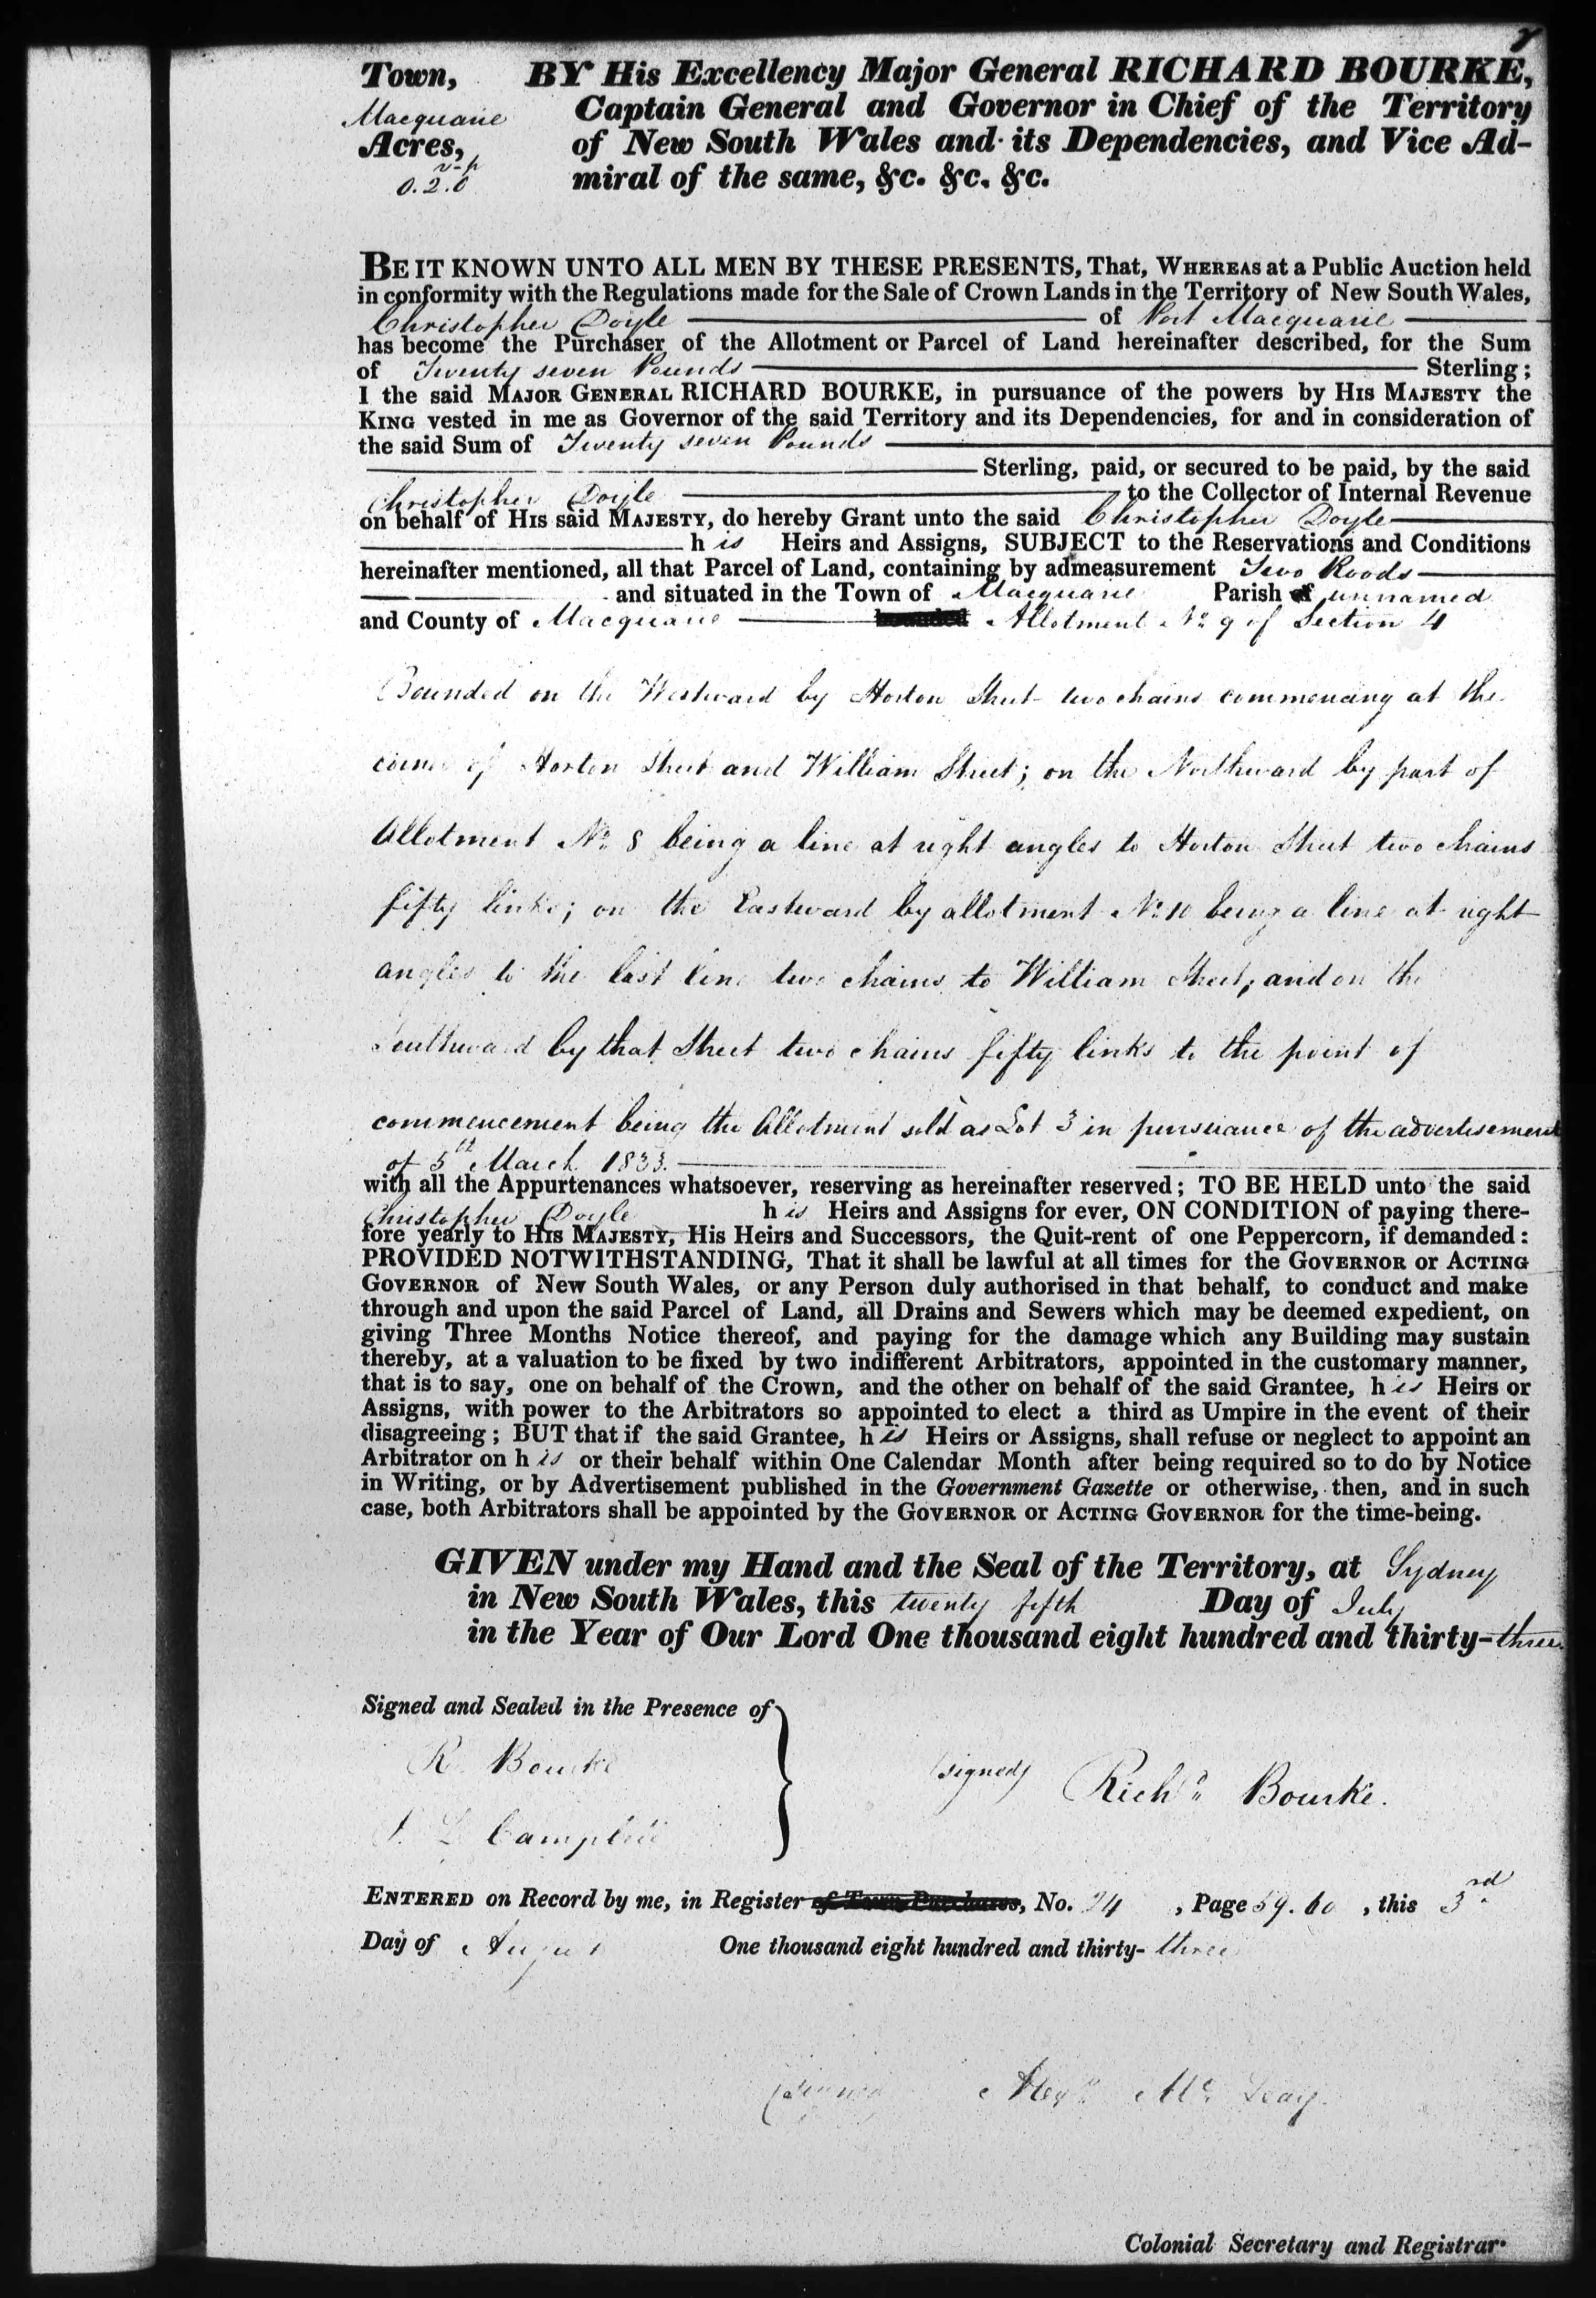 Town, BY His Excellency Major General RICHARD BOURKE,
Macquarie Captain General and Governor in Chief of the Territory
Acres, of New South Wales and its Dependencies, and Vice Ad-
r - p
0.2.0 miral of the same, &c. &c. &c.
BE IT KNOWN UNTO ALL MEN BY THESE PRESENTS, That, WHEREAS at a Public Auction held
in conformity with the Regulations made for the Sale of Crown Lands in the Territory of New South Wales,
Christopher Doyle of Port Macquarie
has become the Purchaser of the Allotment or Parcel of Land hereinafter described, for the Sum
of Twenty seven Pounds Sterling;
I the said MAJOR GENERAL RICHARD BOURKE, in pursuance of the powers by HIS MAJESTY the
KING vested in me as Governor of the said Territory and its Dependencies, for and in consideration of
the said Sum of Twenty seven Pounds
Sterling, paid, or secured to be paid, by the said
Christopher Doyle to the Collector of Internal Revenue
on behalf of HIS said MAJESTY, do hereby Grant unto the said Christopher Doyle
his Heirs and Assigns, SUBJECT to the Reservations and Conditions
hereinafter mentioned, all that Parcel of Land, containing by admeasurement Two Roods
and situated in the Town of Macquarie Parish of unnamed
and County of Macquarie bounded Allotment No. 9 of Section 4
Bounded on the Westward by Horton Street two chains commencing at the
corner of Horton Street and William Street; on the Northward by part of
Allotment No. 8 being a line at right angles to Horton Street two chains
fifty links; on the Eastward by allotment No. 10 being a line at right
angles to the last line two chains to William Street; and on the
Southward by that Street two chains fifty links to the point of
commencement being the Allotment sold as Lot 3 in pursuance of the advertisement
of 5th March 1833.
with all the Appurtenances whatsoever, reserving as hereinafter reserved; TO BE HELD unto the said
Christopher Doyle his Heirs and Assigns for ever, ON CONDITION of paying there-
fore yearly to HIS MAJESTY, His Heirs and Successors, the Quit-rent of one Peppercorn, if demanded:
PROVIDED NOTWITHSTANDING, That it shall be lawful at all times for the GOVERNOR or ACTING
GOVERNOR of New South Wales, or any Person duly authorised in that behalf, to conduct and make
through and upon the said Parcel of Land, all Drains and Sewers which may be deemed expedient, on
giving Three Months Notice thereof, and paying for the damage which any Building may sustain
thereby, at a valuation to be fixed by two indifferent Arbitrators, appointed in the customary manner,
that is to say, one on behalf of the Crown, and the other on behalf of the said Grantee, his Heirs or
Assigns, with power to the Arbitrators so appointed to elect a third as Umpire in the event of their
disagreeing; BUT that if the said Grantee, his Heirs or Assigns, shall refuse or neglect to appoint an
Arbitrator on his or their behalf within One Calendar Month after being required so to do by Notice
in Writing, or by Advertisement published in the Government Gazette or otherwise, then, and in such
case, both Arbitrators shall be appointed by the GOVERNOR or ACTING GOVERNOR for the time-being.
GIVEN under my Hand and the Seal of the Territory, at Sydney
in New South Wales, this twenty fifth Day of July
in the Year of Our Lord One thousand eight hundred and thirty-three
Signed and Sealed in the Presence of
R. Bourke
(signed) Richd. Bourke.
Campbell
ENTERED on Record by me, in Register of Town Purchases, No. 24, Page 59.60, this 3rd
Day of August One thousand eight hundred and thirty-three
(signed) Alexr. McLeay.
Colonial Secretary and Registrar.